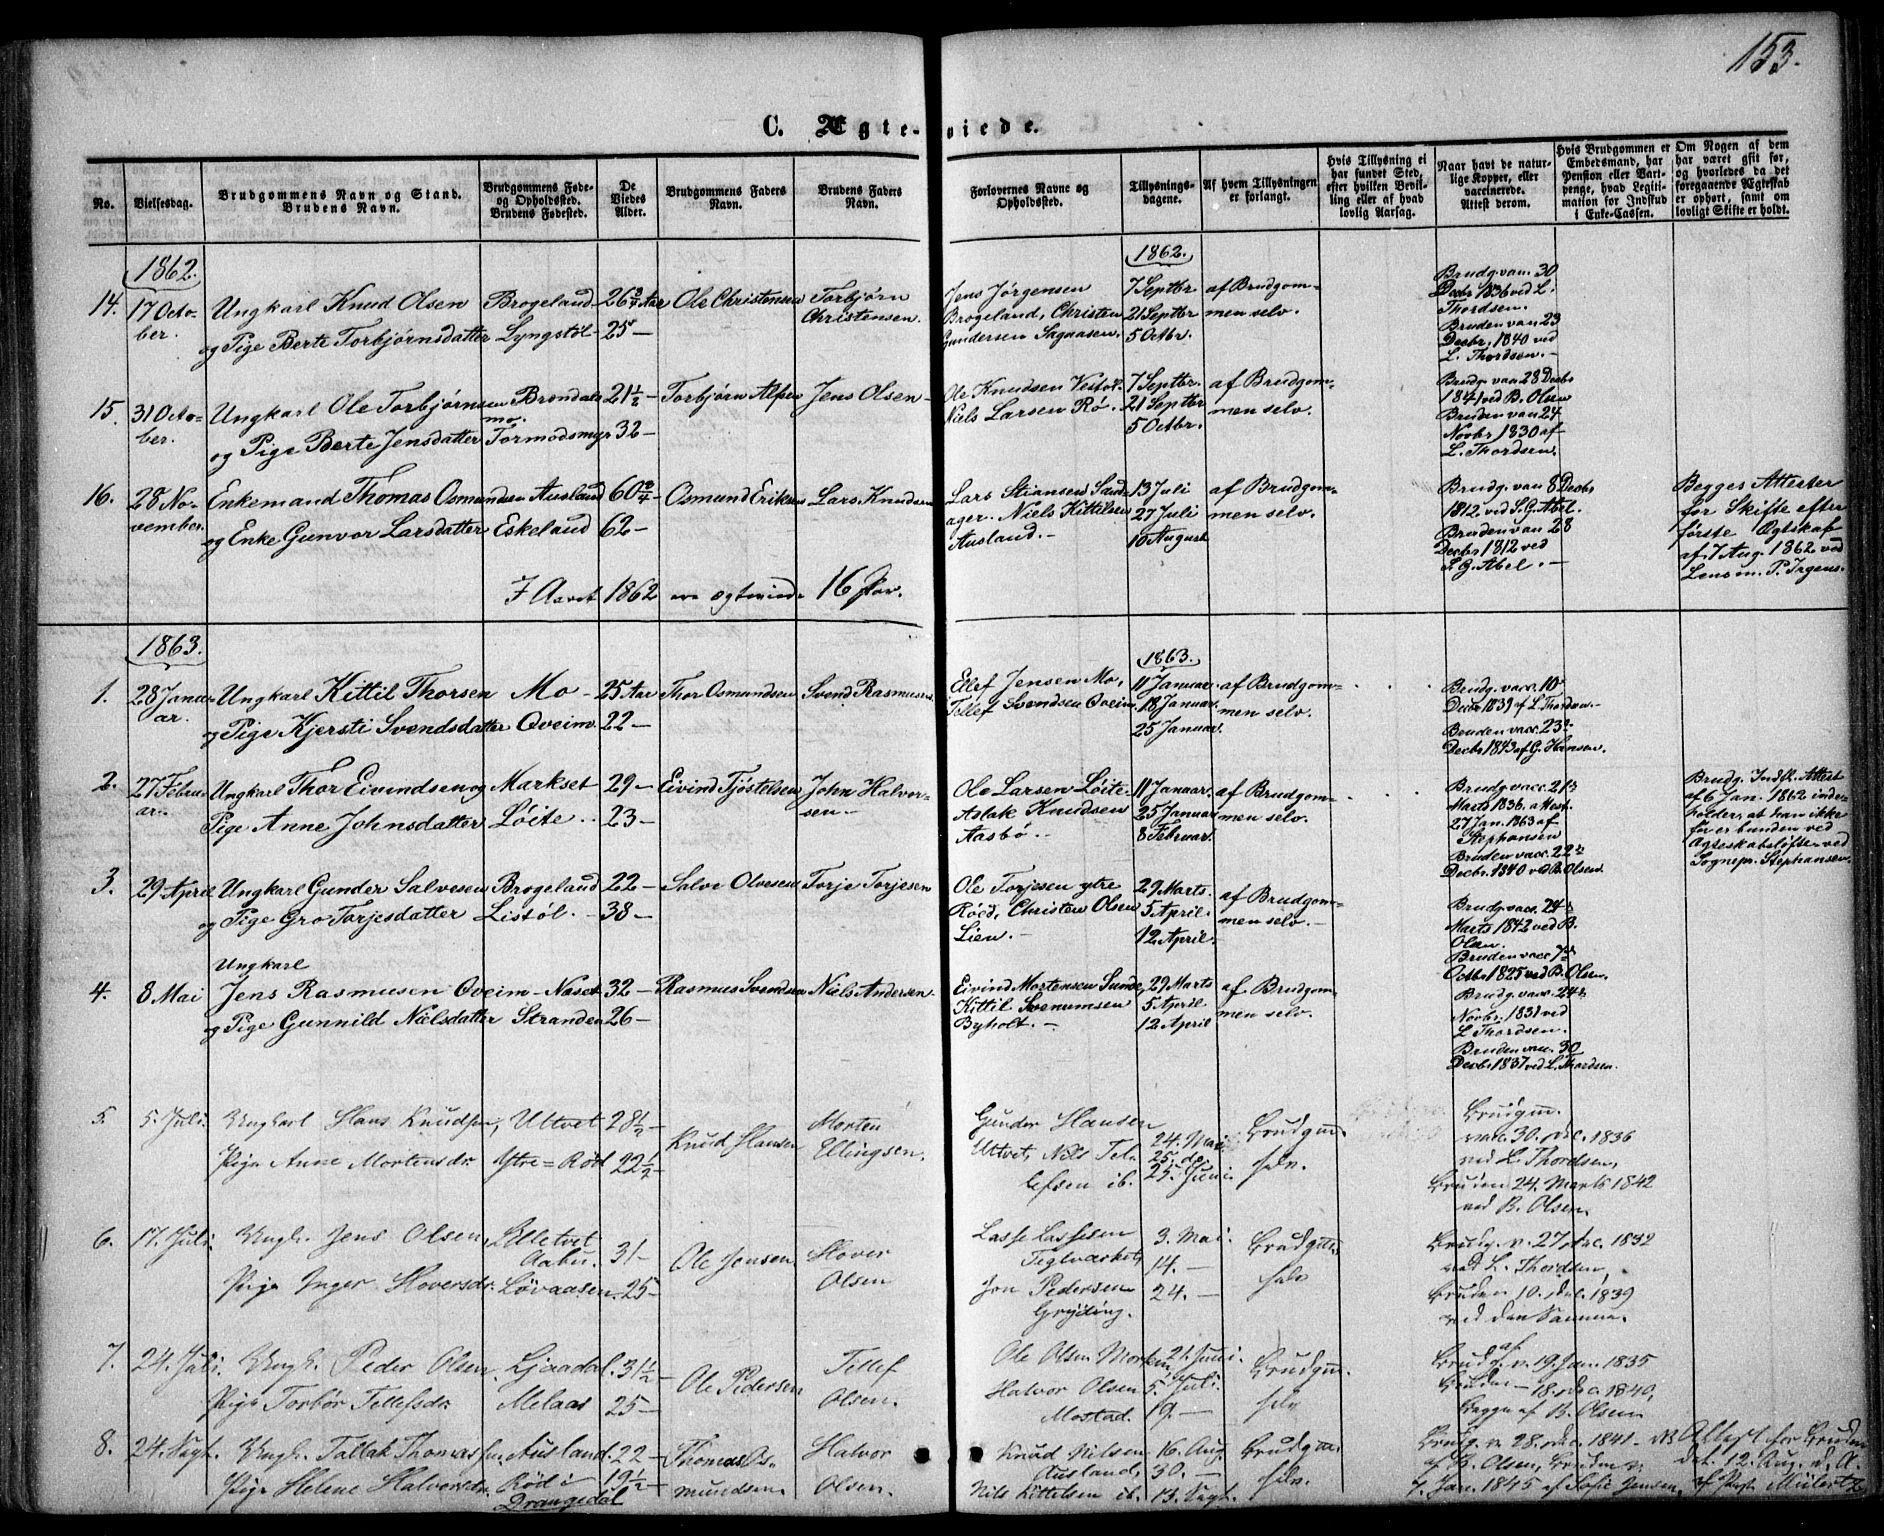 153.
C. Ægte-viede.
No.
Vielsesdag.
Brudgommens Navn og Stand.
Brudens Navn.
Brudgommens Føde-
og Opholdssted.
Brudens Fødested.
De
Viedes
Alder.
Brudgommens Faders
Navn.
Brudens Faders
Navn.
Forlovernes Navne og
Opholdssted.
Tillysnings-
dagene.
Af hvem Tillysningen
er forlangt.
Hvis Tillysning ei
har fundet Sted,
efter hvilken Bevil-
ling eller af hvad
lovlig Aarsag.
Naar havt de natur-
lige Kopper, eller
vaccinerede.
Attest derom.
Hvis Brudgommen er
Embedsmand, har
Pension eller Vart-
penge, hvad Legiti-
mation for Indskud
i Enke-Cassen.
Om Nogen af dem
har været gift før,
og hvorledes da det
foregaaende Ægteskab
er ophørt, samt om
lovligt Skifte er holdt.
1862.
1862.
14. 17 Octo-
ber.
Ungkarl Knud Olsen
og Pige Berte Torbjørnsdatter
Brogeland
Lyngstøl
26 3/4 Aar
25 -
Ole Christensen
Torbjørn
Christensen.
Jens Jørgensen
Brogeland, Christen
Gundersen Sagaasen.
7 Septbr
21 Septbr
5 Octbr.
af Brudgom-
men selv.
Brudg. van. 30
Decbr 1836 ved L.
Thordsen.
Bruden van 23
Decbr. 1840 ved
L. Thordsen. -
15. 31 Octo-
ber.
Ungkarl Ole Torbjørnsen
og Pige Berte Jensdatter
Brøndals
mo.
Tormodsmyr
21 1/2 -
32 -
Torbjørn Alfsen
Jens Olsen -
Ole Knudsen Vestøl
Niels Larsen Rø.
7 Septbr.
21 Septbr
5 Octbr.
af Brudgom-
men selv.
Brudg. van 28 Decbr
1841 ved B. Olsen
Bruden van 24
Novbr 1830 af
L. Thordsen.
16. 28 No-
vember.
Enkemand Thomas Osmundsen
og Enke Gunvor Larsdatter
Ausland
Eskeland
60 3/4 -
62 -
Osmund Eriksen
Lars Knudsen
Lars Stiansen Sand-
ager. Niels Kittilsen
Ausland. -
13 Juli
27 Juli
10 August
af Brudgom-
men selv.
Brudg. van 8 Decbr
1812 ved S. G. Abel.
Bruden van 28
Decbr 1812 ved
S. G. Abel. -
Begges Attester
for Skifte efter
første Ægtskaf
af 7 Aug. 1862 ved
Lensm. P. Irgens.
I Aaret 1862 ere ægteviede 16 Par.
1863.
1863.
1. 28 Janu-
ar.
Ungkarl Kittil Thorsen
og Pige Kjersti Svendsdatter
Mo -
Oveim.
25 Aar
22 -
Thor Osmundsen
Svend Rasmussen
Ellef Jensen Mo,
Tellef Svendsen Oveim.
11 Januar
18 Januar
25 Januar.
af Brudgom-
men selv.
Brudg. vacc. 10
Decbr 1839 af L. Thordsen. -
Bruden vacc. 23
Decbr 1843 af G. Hansen.
2. 27 Febru-
ar.
Ungkarl Thor Eivindsen og
Pige Anne Johnsdatter
Markset
Løite
29 -
23 -
Eivind Tjøstelsen
John Halvor-
sen -
Ole Larsen Løite
Aslak Knudsen
Aasbø. -
11 Januar.
25 Januar
8 Februar.
af Brudgom-
men selv.
Brudg. vacc. 21
Marts 1836. attest.
27 Jan. 1863 af
Stephansen
Bruden vacc. 22
Decbr. 1840 ved B. Olsen.
Brudg. Indfl. Attest
af 6 Jan. 1862 inde-
holder, at han ikke
før er bunden ved
Ægteskabsløfte - ved
Sognepr. Stephansen.
3. 29 April
Ungkarl Gunder Salvesen
og Pige Gro Torjesdatter
Brogeland
Listøl. -
22 -
38 -
Salve Olvesen
Torje Torjesen
Ole Torjesen ytre
Røed, Christen Olsen
Lien. -
29 Marts.
5 April.
12 April.
af Brudgom-
men selv. -
Brudg. vacc. 24
Marts 1842 ved B.
Olsen.
Bruden vacc 7
Octbr 1825 ved B. Olsen.
4. 8 Mai
Ungkarl
Jens Rasmusen
og Pige Gunnild Nielsdatter
Oveim - Næset
Stranden
32 -
26 -
Rasmus Svendsen
Niels Andersen.
Eivind Mortensen Sunde,
Kittil Svenumsen
Byholt. -
29 Marts
5 April
12 April
af Brudgom-
men selv.
Brudg. vacc. 24
Novbr. 1831 ved
L Thordsen.
Bruden vacc. 30
Decbr 1837 ved L. Thordsen.
5. 5. Juli.
Ungkarl Hans Knudsen,
Pige Anne Mortensdr.
Ultvet
Ytre=Rød
28 1/2 -
22 1/2 -
Knud Hansen
Morten
Ellingsen.
Gunder Hansen
Ultvet, Nils Tel-
lefsen ib.
24. Mai.
25. do.
25. Juni.
Brudgm.
selv.
Brudgm.
vac. 30. dec. 1836
ved L. Thordsen,
Bruden 24. Marts 1842
ved B. Olsen.
6. 17. Juli.
Ungk. Jens Olsen,
Pige Inger Hoversdr.
Lilletvet
Aabu.
Løvaasen.
31 -
25 -
Ole Jensen
Hover
Olsen
Lasse Lassesen
Teglværket,
Jon Pedersen
Gryting.
3. Mai.
14. -
24. -
Brudgm.
selv
Brudg. v. 27. dec. 1832
ved L. Thordsen,
Bruden 10. dec. 1839
ved den Samme.
7. 24. Juli.
Ungk. Peder Olsen
Pige Torbør Tellefsdr
Ljaadal.
Melaas
31 1/2 -
25 -
Ole Pedersen
Tellef
Olsen.
Ole Olsen Morken
Halvor Olsen
Mostad.
21. Juni.
5. Juli.
19. -
Brudgm.
selv
Brudg. v. 19. Jan. 1835
Bruden - 18. dec. 1840,
Begge af B. Olsen.
8. 24. Sept.
Ungk. Tallak Thomassen,
Pige Helene Halvorsdr.
Ausland.
Rød i
Drangedal
22 -
19 1/2 -
Thomas Os-
mundsen.
Halvor
Olsen.
Knud Nilsen
Ausland,
Nils Kittelsen ib.
16. Aug.
30. -
13. Sept.
Brudgm.
selv.
Brudg. v. 28. dec. 1841
af B. Olsen, Bruden v.
7. Jan. 1845 af Sofie Jensen,
Attest for Bruden
dat. 12 Aug. d. A.